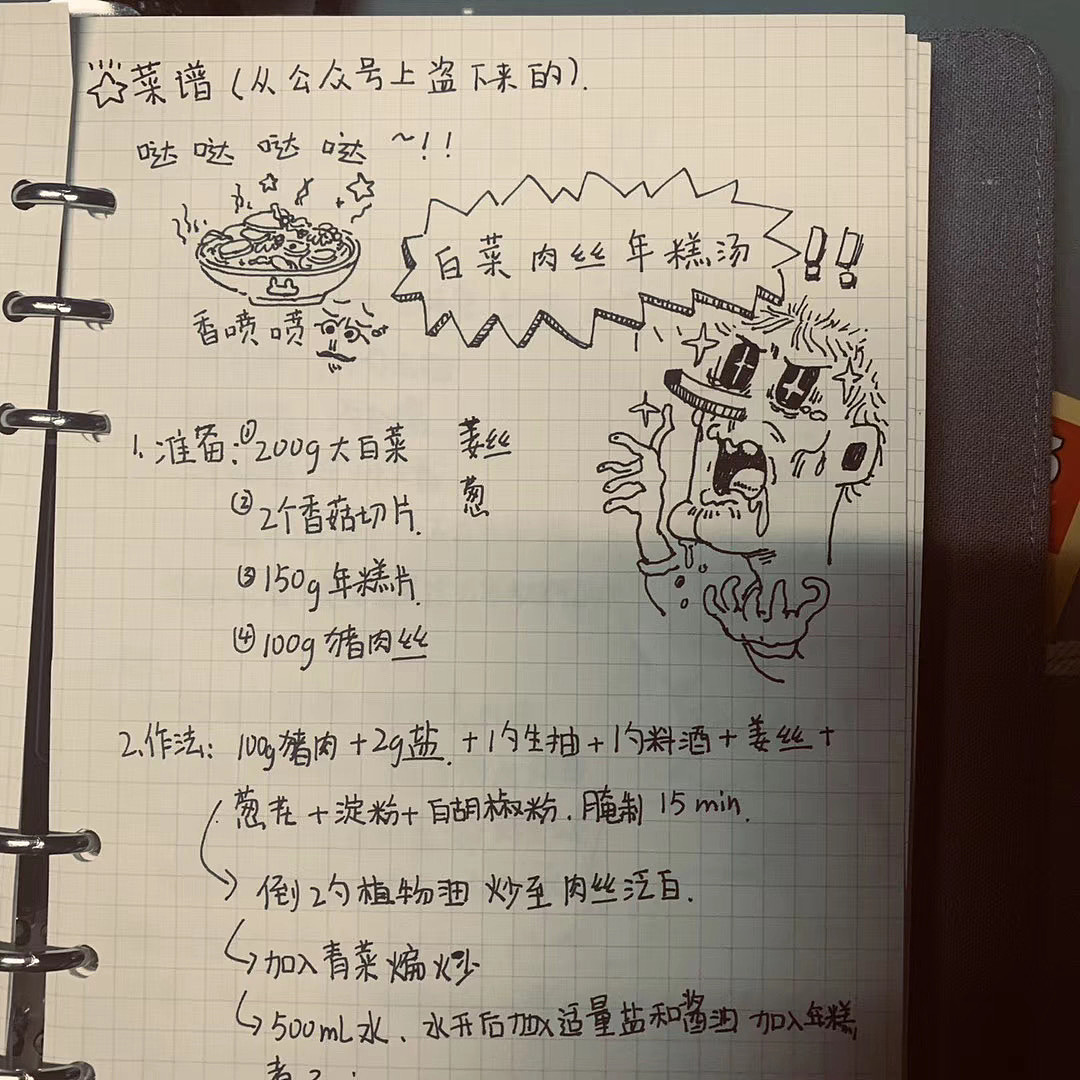 菜谱(从公众号上盗下来的).
哒哒哒哒~!!
白菜肉丝年糕汤!!
香喷喷
1.准备:①200g大白菜 姜丝
②2个香菇切片. 葱
③150g年糕片.
④100g猪肉丝
2.作法:100g猪肉+2g盐.+1勺生抽+1勺料酒+姜丝+
葱花+淀粉+白胡椒粉.腌制15min.
倒2勺植物油 炒至肉丝泛白.
加入青菜煸炒
500mL水、水开后加入适量盐和酱油 加入年糕